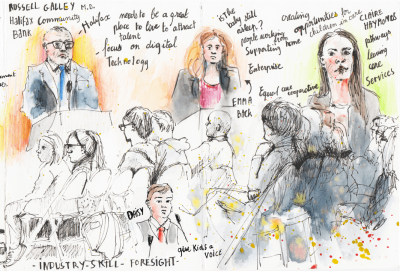 RUSSELL GALLEY M.D.
Halifax Community
BANK
Halifax
needs to be a great
place to live to attract
talent
focus on digital
Technology
"is the
baby still
asleep?
people working from
supporting home
Enterprise
EMMA
creating
opportunities for
children in care
CLAIRE
pathways
leaving
care
Services
Equal care
DAISY
give Kids a
VOICE
-INDUSTRY-SKILL-FORESIGHT-